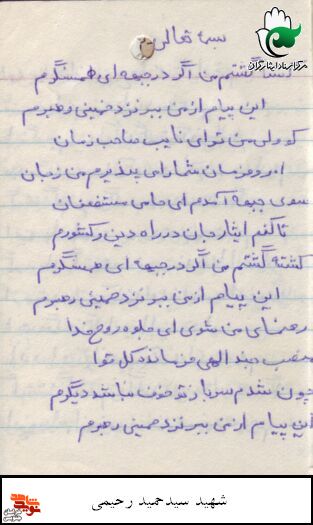 بسمه تعالی
کشته گشتم من اگر در جبهه ای همسنگرم
این پیام از من ببر نزد خمینی رهبرم
کو ولی من توای نایب صاحب زمان
امر و فرمان شما را می پذیرم من زجان
سوی جبهه آمدم ای حامی مستضعفان
تا کنم ایثار جان در راه دین و کشورم
کشته گشتم من اگر در جبهه ای همسنگرم
این پیام از من ببر نزد خمینی رهبرم
رهنمای من توی ای جلوه روح خدا
منصب جند الهی فرمانده کل قوا
چون شدم سرباز تو خوف نباشد دیگرم
این پیام از من ببر نزد خمینی رهبرم
مرکز اسناد ایثارگران
شهید سیدحمید رحیمی